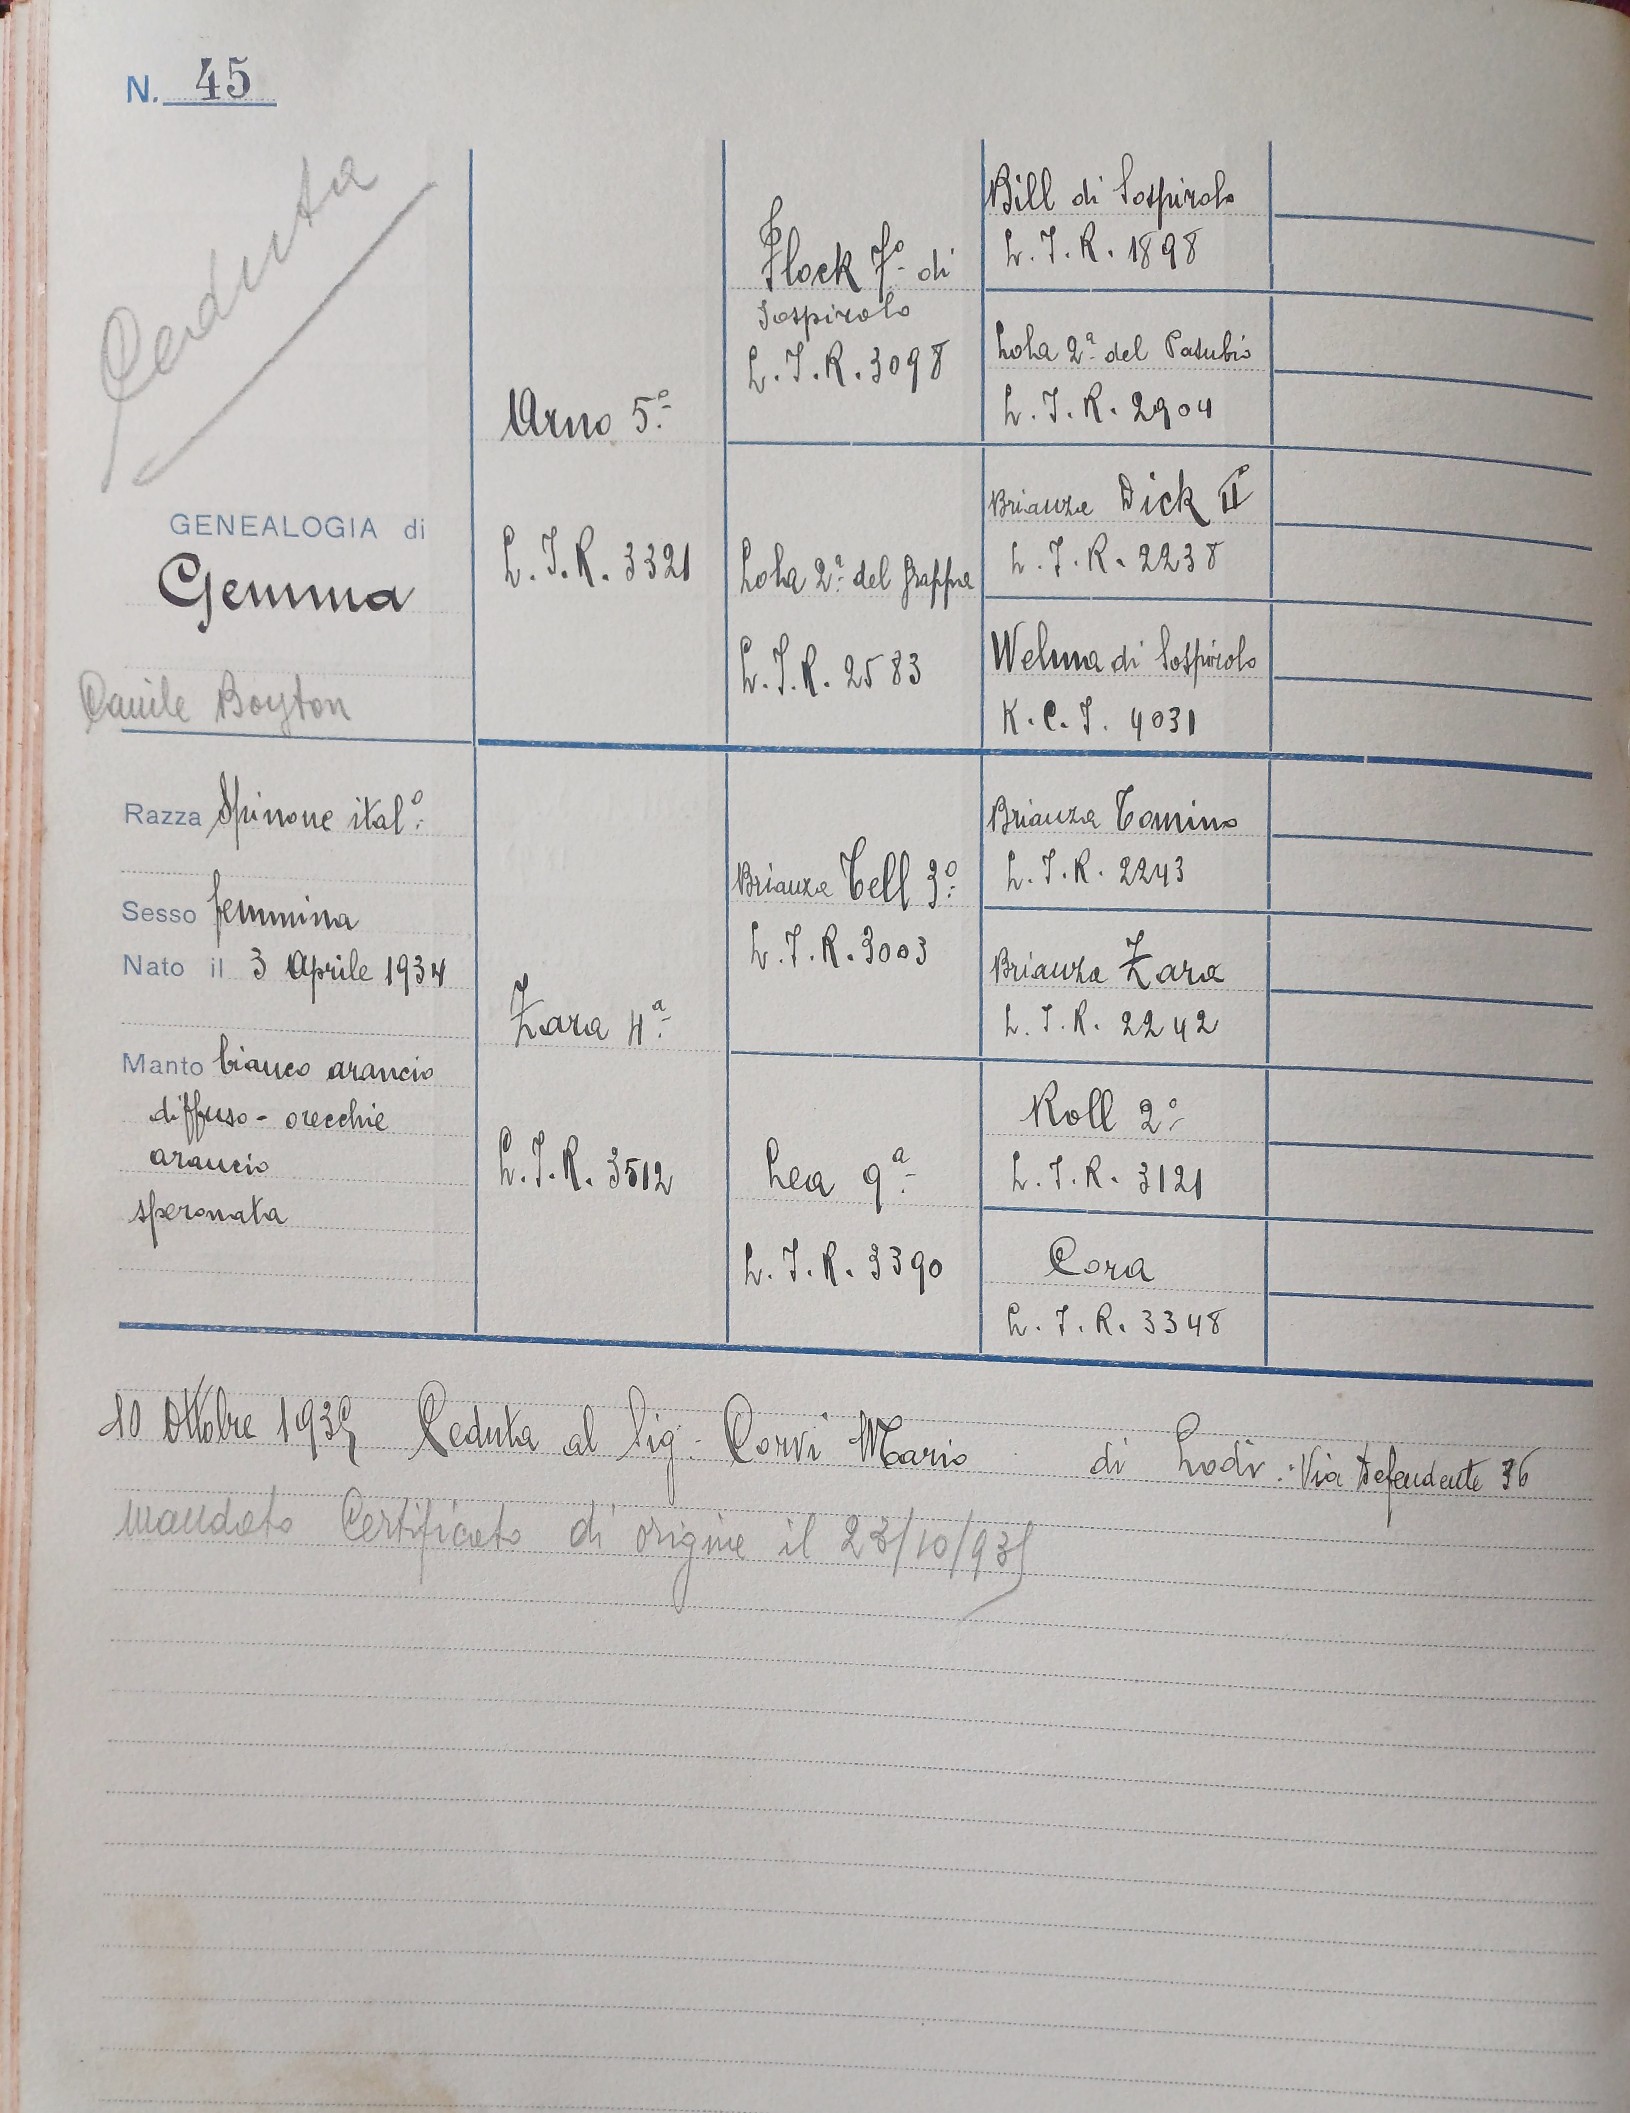 N. 45
Ceduta
GENEALOGIA di
Gemma
Canile Boyton
Razza Spinone ital.º
Sesso femmina
Nato il 3 Aprile 1934
Manto bianco arancio
diffuso - orecchie
arancio
speronata
Arno 5.º
L.I.R. 3321
Zara 4.ª
L.I.R. 3512
Flock 7.º di
Sospirolo
L.I.R. 3098
Lola 2.ª del Grappa
L.I.R. 2583
Brianza Tell 3.º
L.I.R. 3003
Lea 9.ª
L.I.R. 3390
Bill di Sospirolo
L.I.R. 1898
Lola 2.ª del Pasubio
L.I.R. 2904
Brianza Dick IIº
L.I.R. 2238
Welma di Sospirolo
K.C.I. 4031
Brianza Tomino
L.I.R. 2243
Brianza Zara
L.I.R. 2242
Roll 2.º
L.I.R. 3121
Cora
L.I.R. 3348
10 Ottobre 1935 Ceduta al Sig. Corvi Mario di Lodi. Via Defendente 36
mandato Certificato di origine il 23/10/935